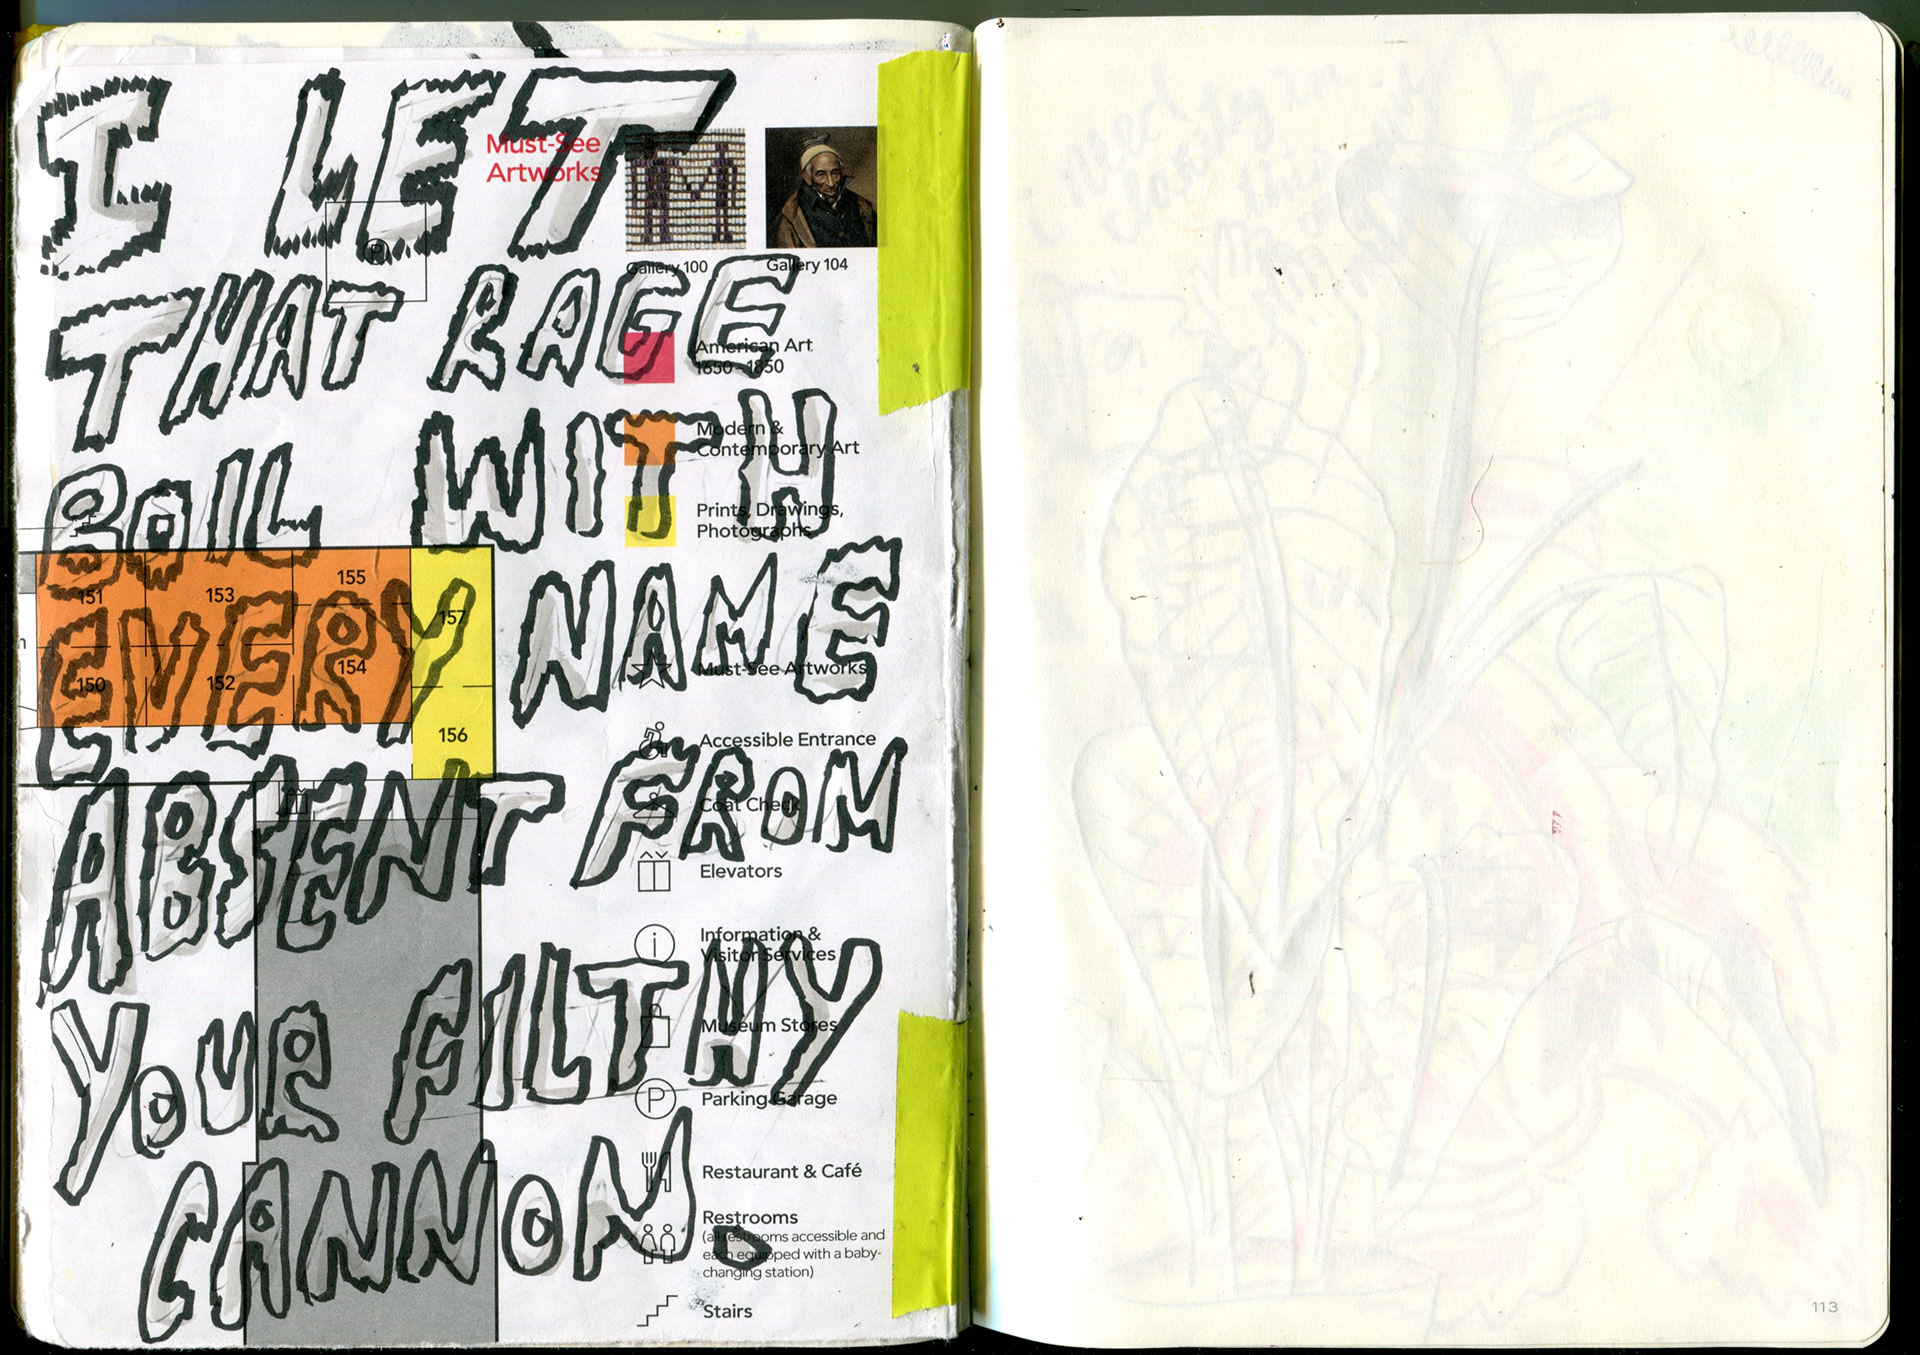 I LET
THAT RAGE
BOIL WITH
EVERY NAME
ABSENT FROM
YOUR FILTHY
CANNON.
Must-See
Artworks
Gallery 100
Gallery 104
American Art
1650–1850
Modern &
Contemporary Art
Prints, Drawings,
Photographs
151
153
155
157
150
152
154
156
Must-See Artworks
Accessible Entrance
Coat Check
Elevators
i
Information &
Visitor Services
Museum Stores
P
Parking Garage
Restaurant & Café
Restrooms
(all restrooms accessible and
each equipped with a baby-
changing station)
Stairs
P
113